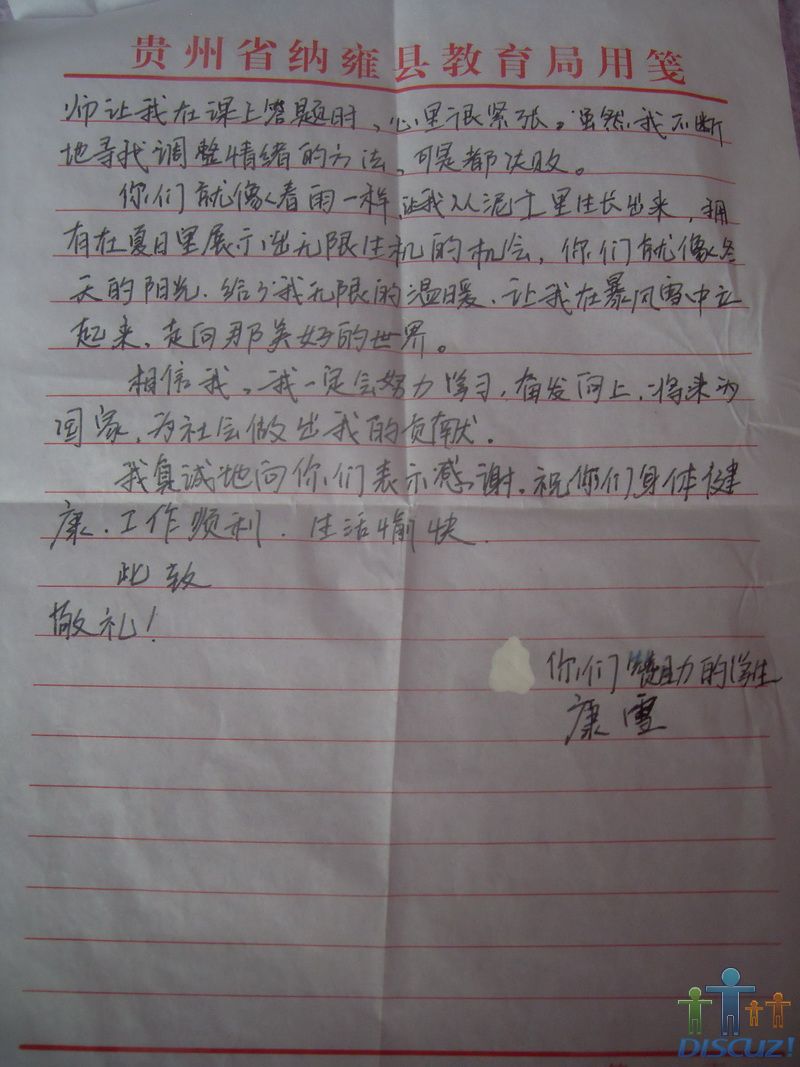 贵州省纳雍县教育局用笺
师让我在课上答题时、心里很紧张。虽然我不断
地寻找调整情绪的方法，可是都失败。
你们就像春雨一样，让我从泥土里生长出来，拥
有在夏日里展示出无限生机的机会，你们就像冬
天的阳光，给了我无限的温暖，让我在暴风雪中立
起来，走向那美好的世界。
相信我，我一定会努力学习，奋发向上，将来为
国家，为社会做出我的贡献。
我真诚地向你们表示感谢。祝你们身体健
康、工作顺利、生活愉快.
此致
敬礼！
你们赞助的学生
康雪
DISCUZ!